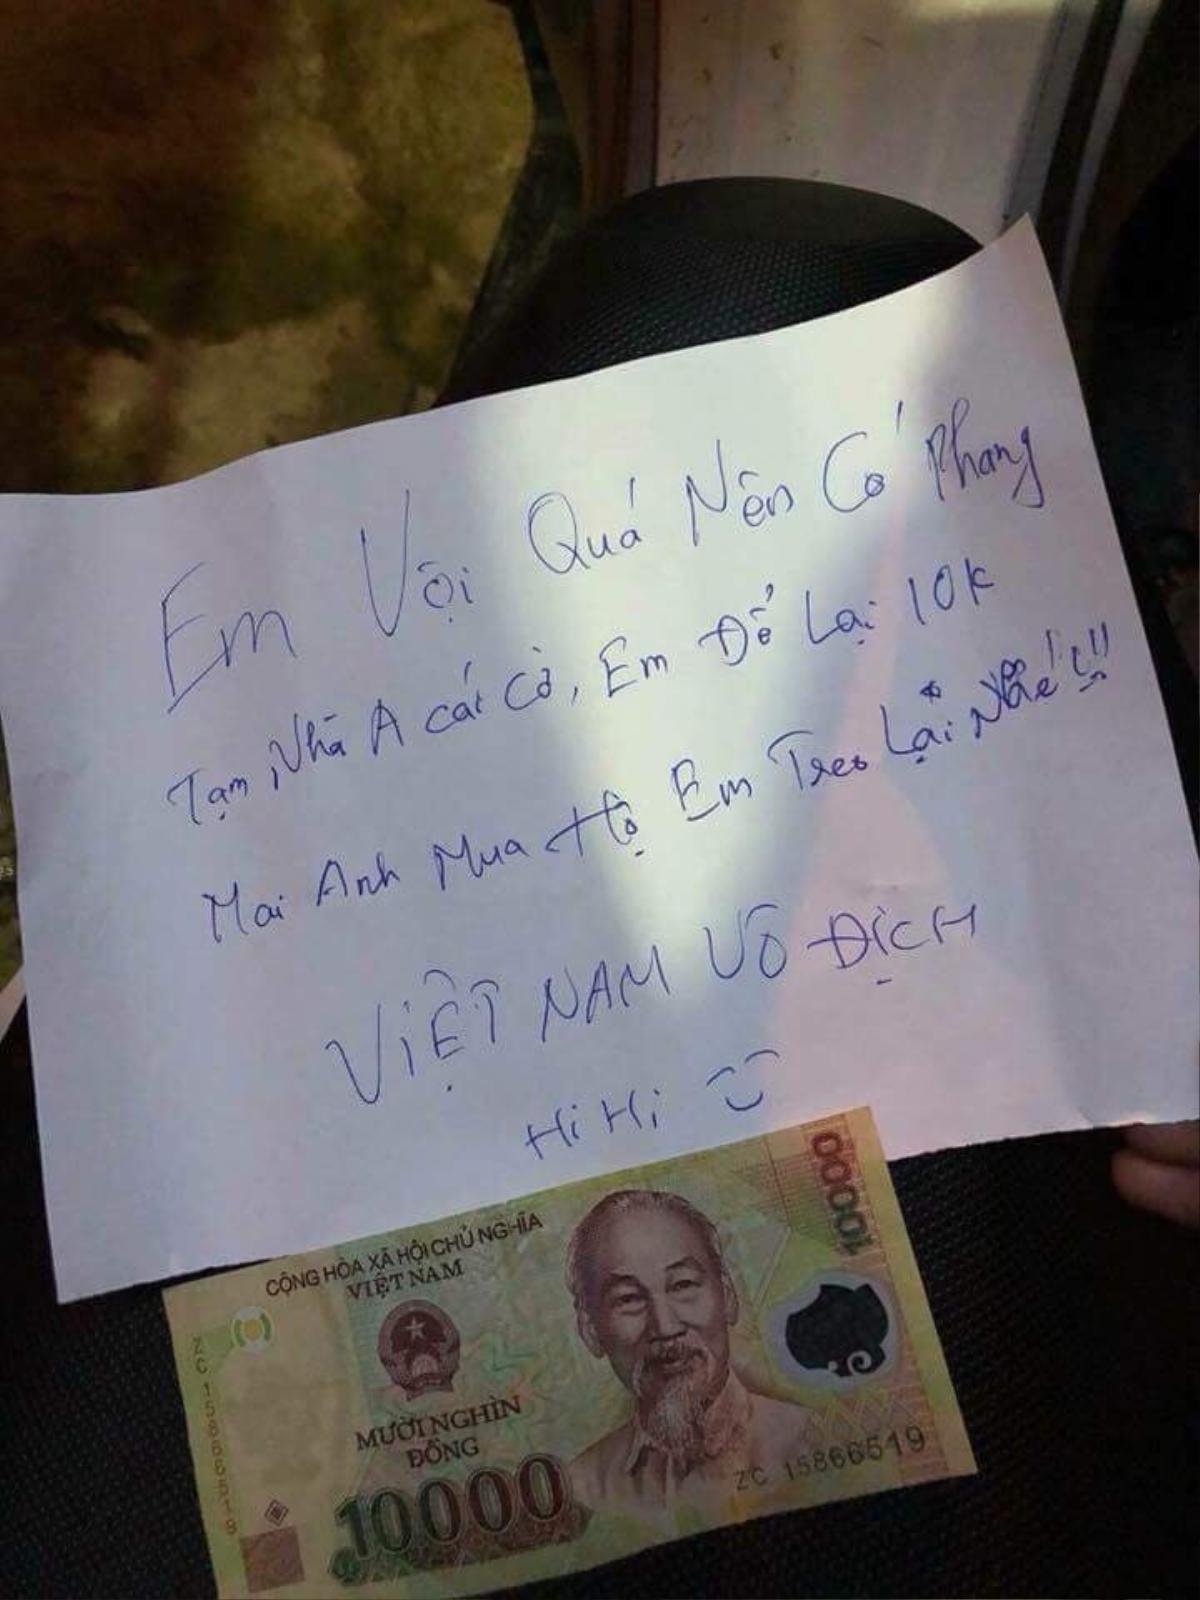 Em Vội Quá Nên Có Phang
Tạm Nhà A cái Cờ, Em Để Lại 10k
Mai Anh Mua Hộ Em Treo Lại Nhé!!!
VIỆT NAM VÔ ĐỊCH
Hi Hi
CỘNG HÒA XÃ HỘI CHỦ NGHĨA
VIỆT NAM
10000
MƯỜI NGHÌN
ĐỒNG
10000
ZC 15866519
ZC 15866519